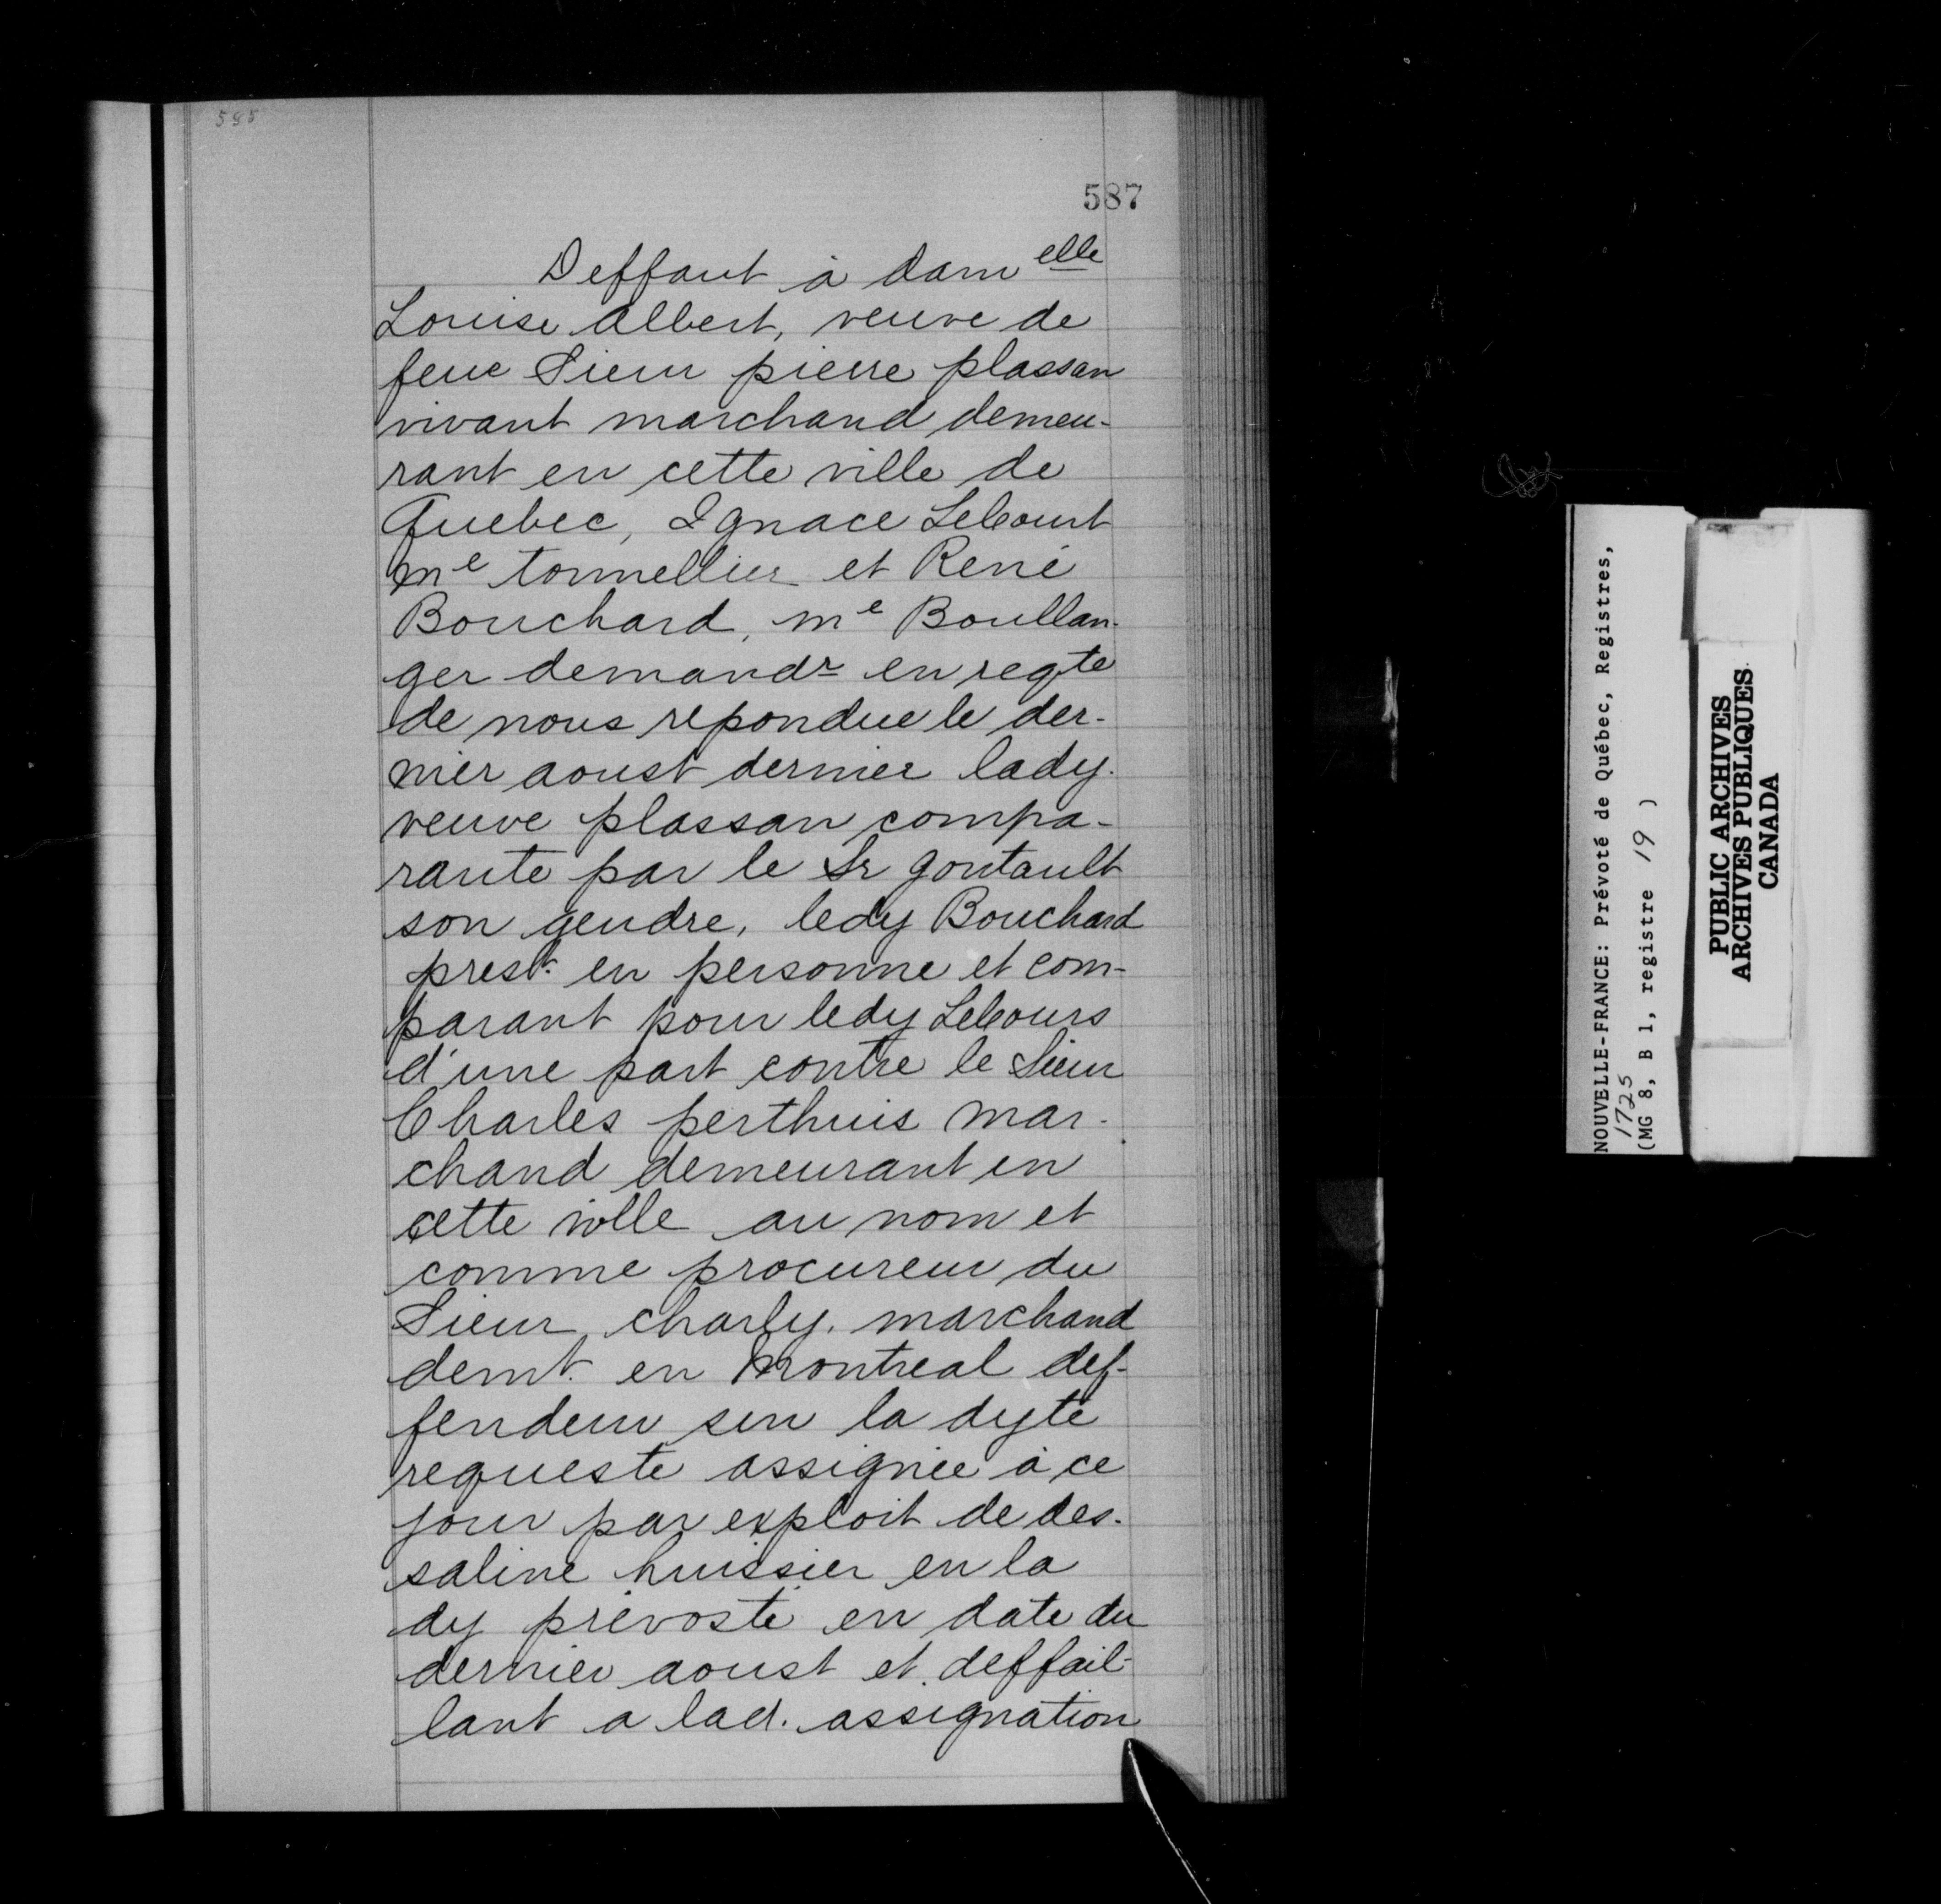 587
Deffaut à dam elle
Louise albert, veuve de
feue Sieur pierre plassan
vivant marchand demeu-
rant en cette ville de
Quebec, Ignace Lecourt
me tonnellier et René
Bouchard, me Boullan-
ger demandr en reqte
de nous repondue le der-
nier aoust dernier lady.
veuve plassan compa-
rante par le Sr goutault
son gendre, ledy Bouchard
prest. en personne et com-
parant pour ledy Lecours
d'une part contre le Sieur
Charles perthuis mar-
chand demeurant en
cette ville au nom et
comme procureur du
Sieur charly. marchand
demt. en Montreal def-
fendeur sur la dyte
requeste assignée à ce
jour par exploit de des-
saline huissier en la
dy prévosté en date du
dernier aoust et deffail-
lant a lad. assignation
NOUVELLE-FRANCE: Prévoté de Québec, Registres,
1725
(MG 8, B 1, registre 19 )
PUBLIC ARCHIVES
ARCHIVES PUBLIQUES
CANADA